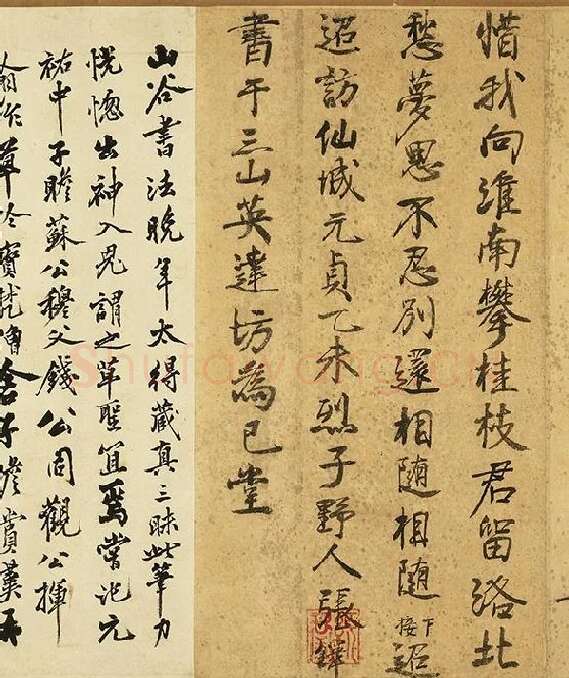 惜我向淮南攀桂枝君留洛北
愁夢思不忍别還相随相随
接下
迢
迢訪仙城元貞乙未烈子野人張鐸
書于三山英達坊為已堂
山谷書法晚年大得藏真三昧此筆力
恍惚出神入鬼謂之草聖宜焉嘗記元
祐中子瞻蘇公穆父錢公同觀公揮
翁作草